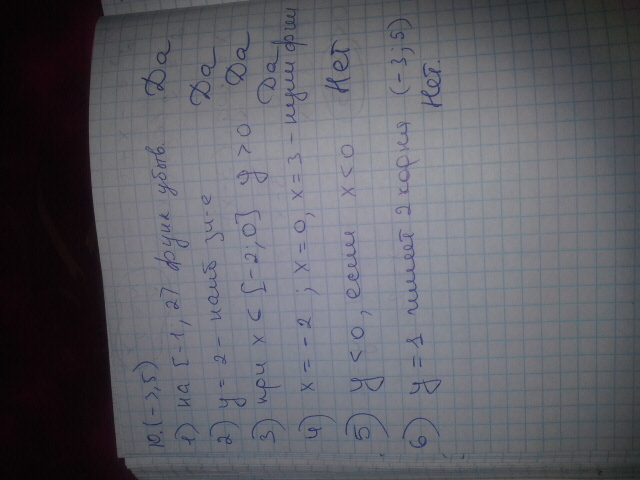 10. (-3, 5)
1) на [-1, 2] функ убыв. Да
2) y = 2 - наиб зн-е Да
3) при x ∈ [-2; 0] y > 0 Да
4) x = -2 ; x = 0, x = 3 - нули ф-ии Да
5) y < 0, если x < 0 Нет
6) y = 1 имеет 2 корня (-3; 5) Нет.